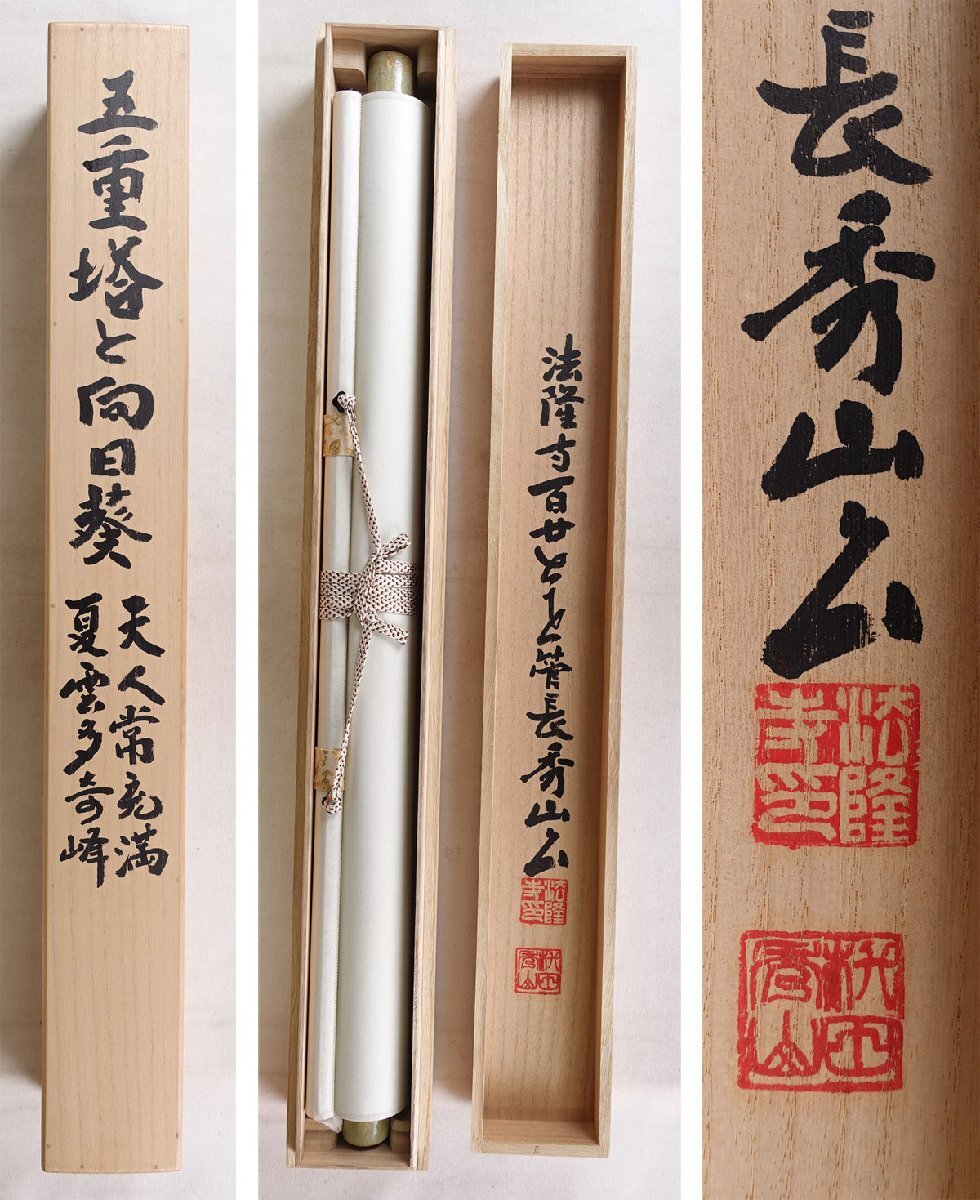 五重塔と向日葵
天人常充満
夏雲多奇峰
法隆寺百廿七世管長秀山
法隆寺印
枡田秀山
長秀山
法隆寺印
枡田秀山